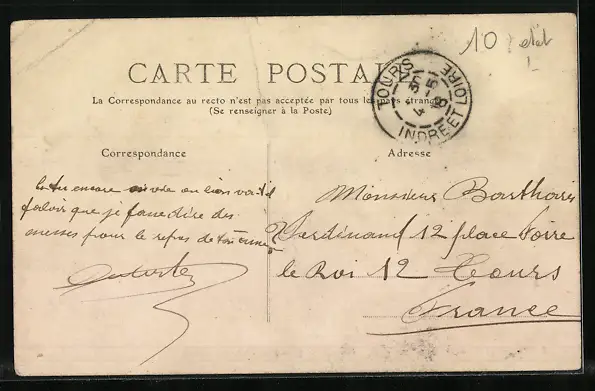 10
CARTE POSTALE
La Correspondance au recto n'est pas acceptée par tous les pays étrangers
(Se renseigner à la Poste)
TOURS
INDRE ET LOIRE
Correspondance
Adresse
es tu encore en vie ou bien va-t-il
falloir que je fasse dire des
messes pour le repos de ton
Monsieur
Ferdinand 12 place Foire
le Roi 12 Tours
France